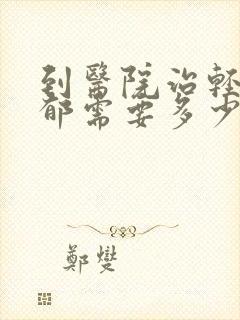 到醫院治輕
郁需要多少
鄭燮